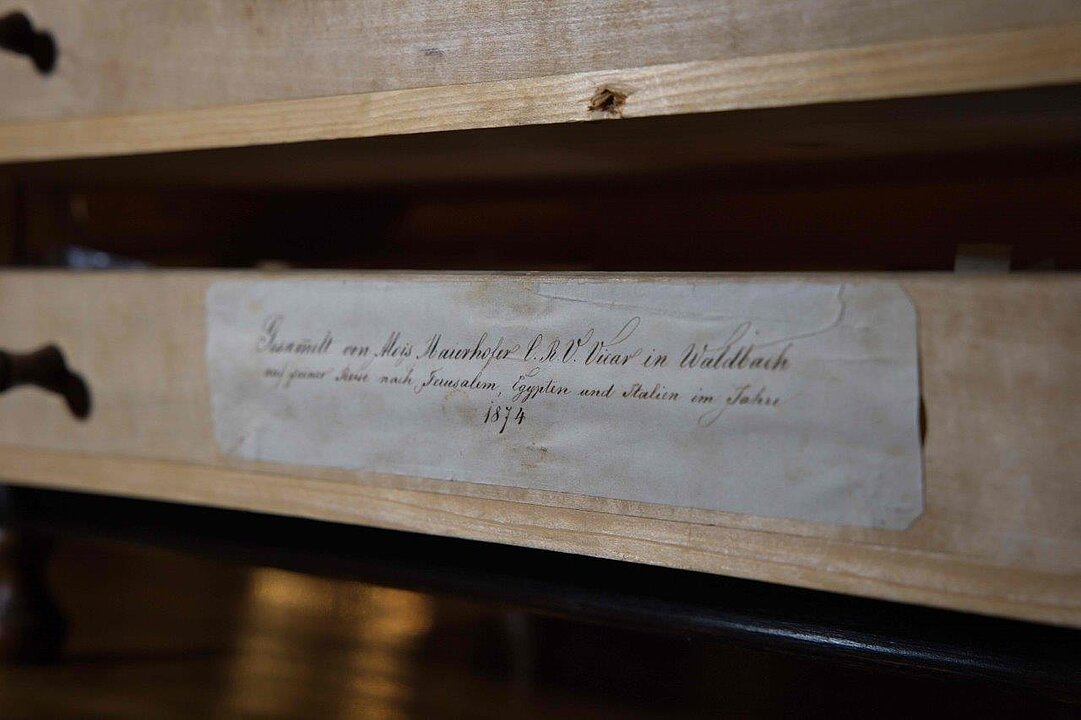 Gesam̄elt von Alois Mauerhofer C. R. V. Vicar in Waldbach
auf seiner Reise nach Jerusalem, Egypten und Italien im Jahre
1874